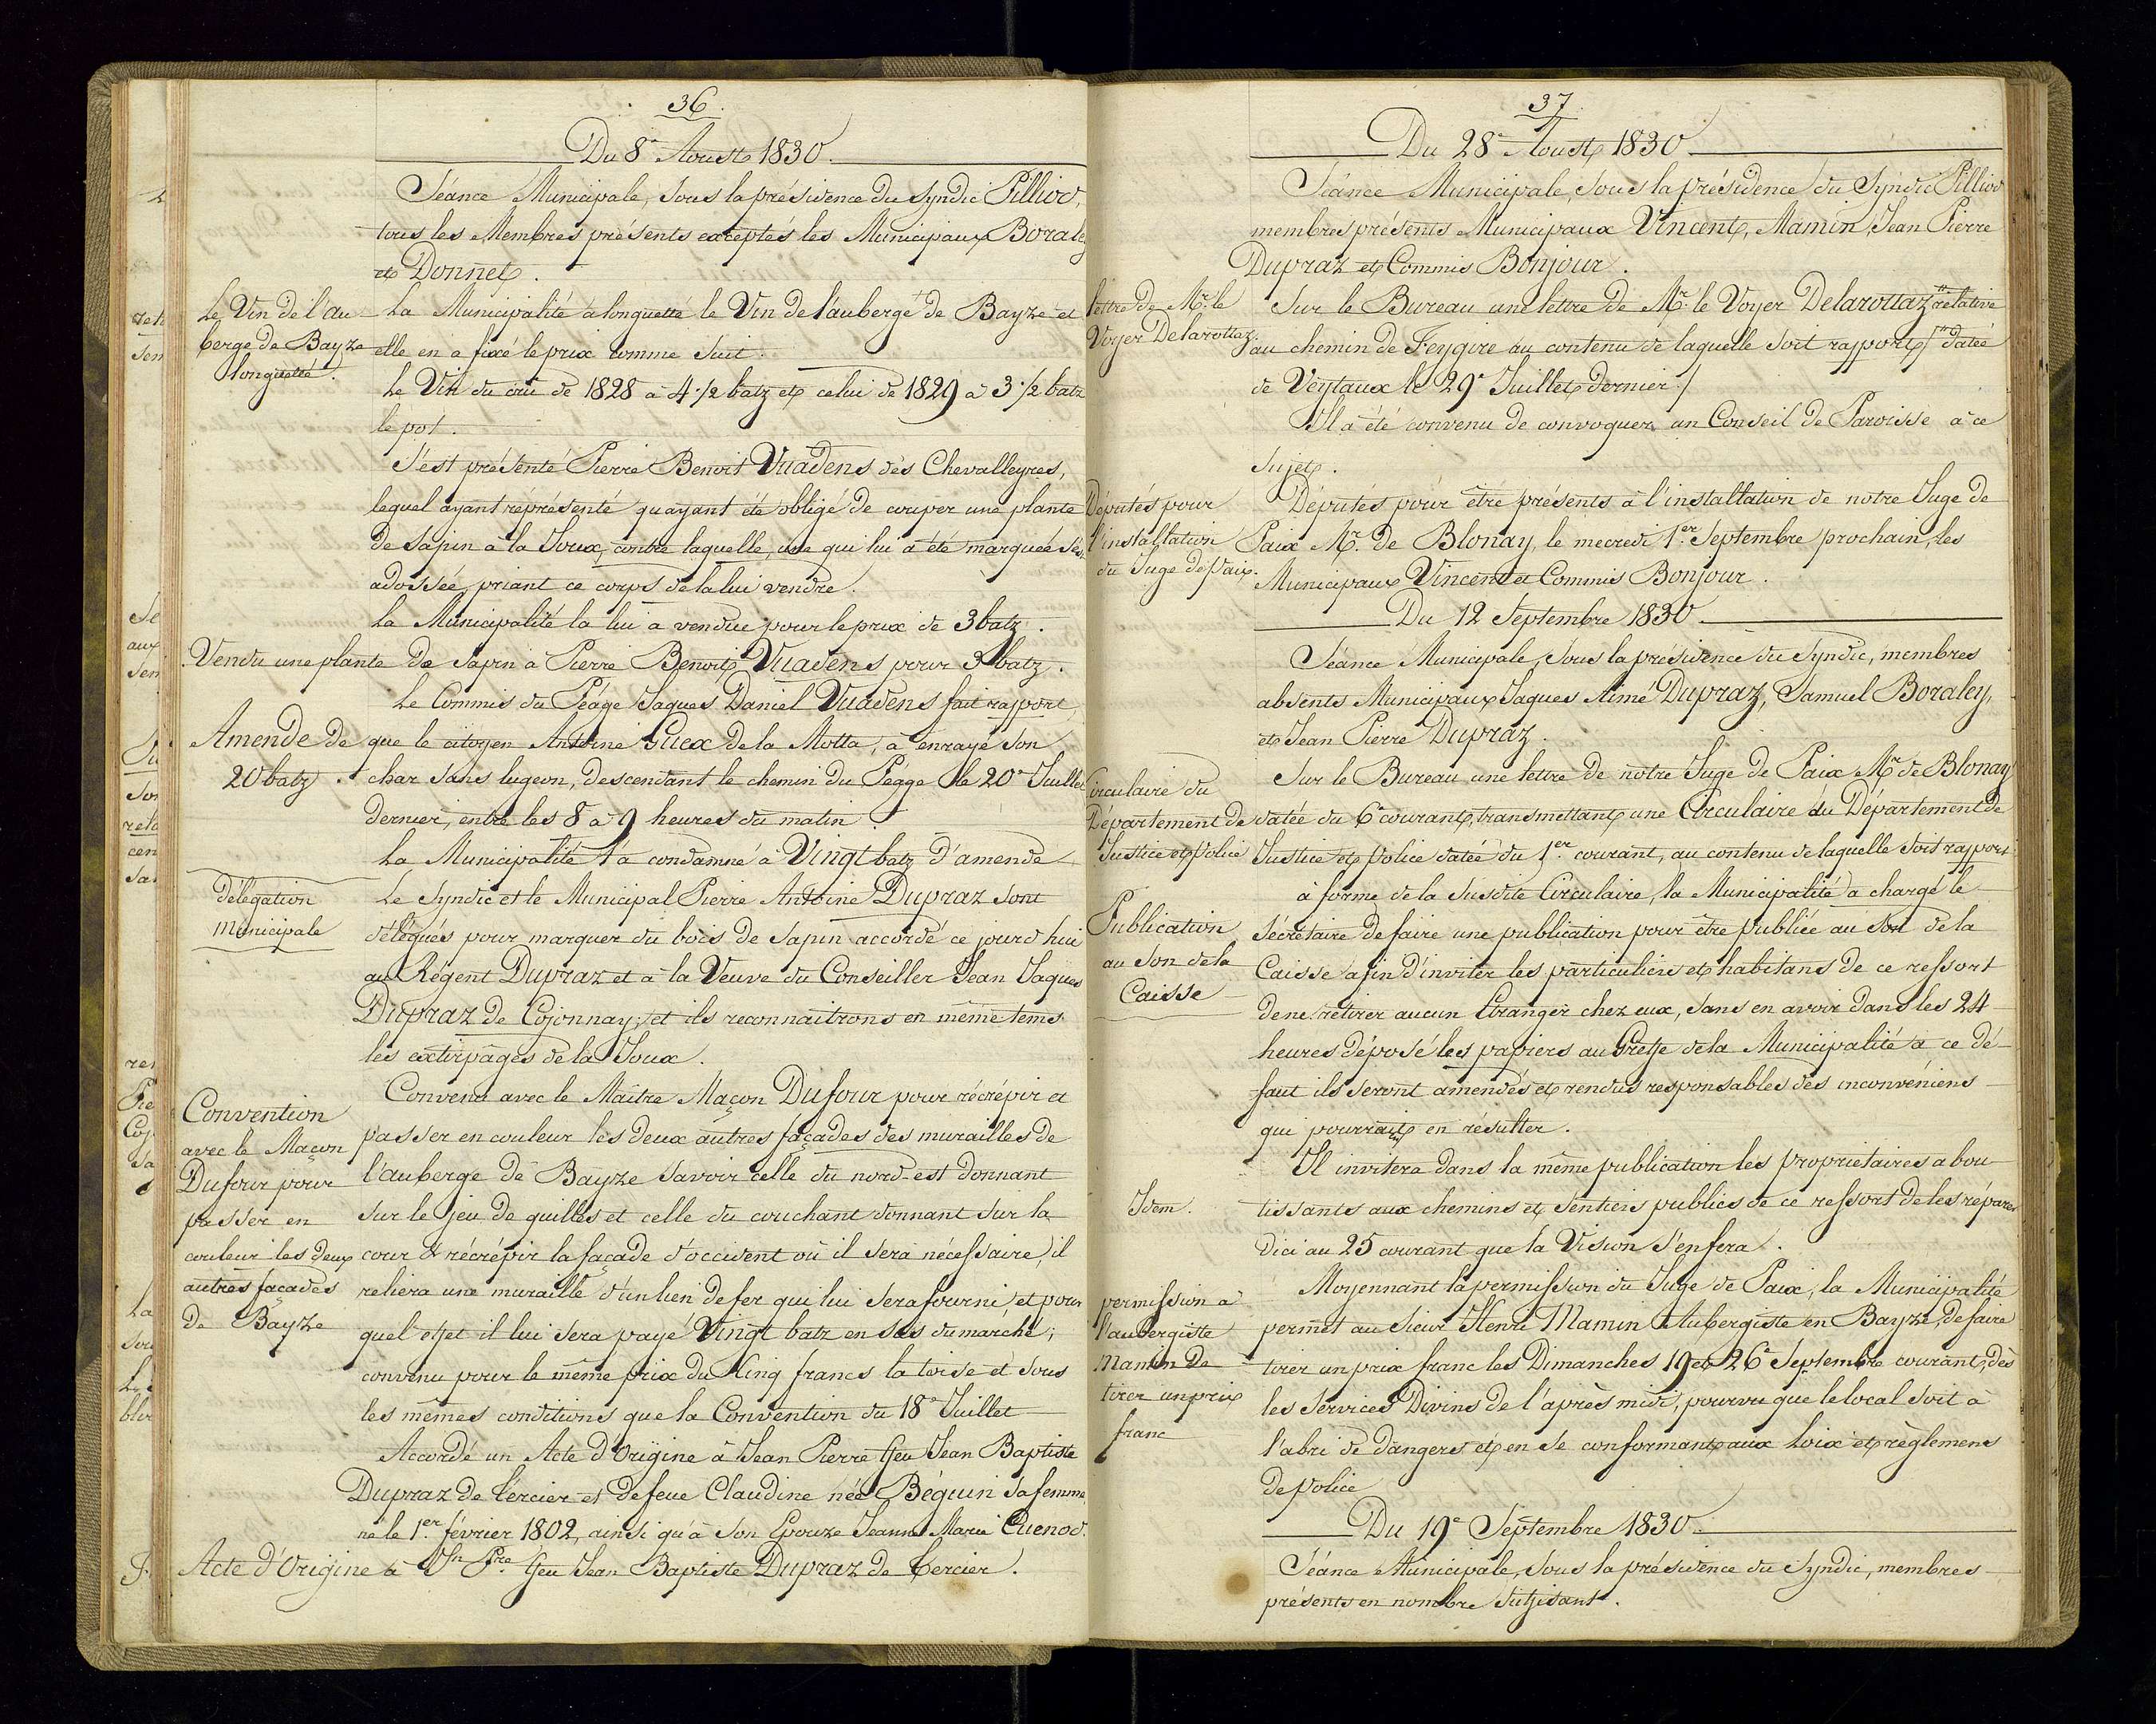 36.
Du 8e Aoust 1830.
Séance Municipale, sous la présidence du Syndic Pilliod,
tous les Membres présents exceptés les Municipaux Boraley
et Donnet.
Le Vin de l'au
berge de Bayze
longuetté.
La Municipalité a longuetté le Vin de l'auberge de Bayze et
elle en a fixé le prix comme suit.
Le Vin du crû de 1828 à 4 1/2 batz et celui de 1829 à 3 1/2 batz
le pot.
S'est présenté Pierre Benoit Vuadens dès Chevalleyres,
lequel ayant réprésenté qu'ayant été obligé de couper une plante
de sapin à la Joux, contre laquelle, une qui lui a été marquée s'es.
adossée, priant ce corps de la lui vendre.
La Municipalité la lui a vendue pour le prix de 3 batz.
Vendu une plante de sapin à Pierre Benoit Vuadens pour 3 batz.
Le Commis du Péage Jaques Daniel Vuadens fait rapport,
Amende de
20 batz.
que le citoyen Antoine Guex de la Motta, a enrayé son
char sans lugeon, descendant le chemin du Peage le 20e Juillet
dernier, entre les 8 à 9 heures du matin.
La Municipalité l'a condamné à Vingt batz d'amende
délégation
Municipale
Le Syndic et le Municipal Pierre Antoine Dupraz sont
délégués pour marquer du bois de sapin accordé ce jourd'hui
au Régent Dupraz et à la Veuve du Conseiller Jean Jaques
Dupraz de Cojonnay, et ils reconnaitrons en même tems
les extirpages de la Joux.
Convention
avec le Maçon
Dufour pour
passer en
couleur les deux
autres façades
de Bayze
Convenu avec le Maître Maçon Dufour pour récrépir et
passer en couleur les deux autres façades des murailles de
l'auberge de Bayze savoir celle du nord-est donnant
sur le jeu de quilles et celle du couchant donnant sur la
cour & récrépir la façade d'occident où il sera nécessaire, il
reliera une muraille d'un lien de fer qui lui sera fourni, et pour
quel effet il lui sera payé Vingt batz en sus du marché;
convenu pour le même prix du Cinq francs la toise et sous
les mêmes conditions que la Convention du 18e Juillet
Accordé un Acte d'Origine à Jean Pierre ffeu Jean Baptiste
Dupraz de Cercier et de feue Claudine née Béguin sa femme
né le 1er. février 1802, ainsi qu'à son Epouze Jeanne Marie Cuenod.
Acte d'Origine à Jn Pre ffeu Jean Baptiste Dupraz de Cercier.
37.
Du 28e Aoust 1830
Séance Municipale, sous la présidence du Syndic Pilliod
membres présents Municipaux Vincent, Mamin, Jean Pierre
Dupraz et Commis Bonjour.
lettre de Mr. le
Voyer Delarottaz.
Sur le Bureau une lettre de Mr. le Voyer Delarottaz relative
au chemin de Feygire au contenu de laquelle soit rapport datée
de Veytaux le 29e Juillet dernier./
Il a été convenu de convoquer un Conseil de Paroisse à ce
sujet.
Députés pour
l'installation
du Juge de Paix.
Députés pour être présents à l'installation de notre Juge de
Paix Mr. de Blonay, le mecredi 1er. Septembre prochain, les
Municipaux Vincent et Commis Bonjour.
Du 12 Septembre 1830
Séance Municipale, sous la présidence du Syndic, membres
absents Municipaux Jaques Aimé Dupraz, Samuel Boraley,
et Jean Pierre Dupraz.
Circulaire du
Département de
Justice et police
Sur le Bureau une lettre de notre Juge de Paix Mr. de Blonay
datée du 6e courant, transmettant une Circulaire du Département de
Justice et Police datée du 1er. courant, au contenu de laquelle soit rapport
Publication
au son de la
Caisse
à forme de la susdite Circulaire, la Municipalité a chargé le
sécrétaire de faire une publication pour être publiée au son de la
Caisse afin d'inviter les particuliers et habitans de ce ressort
de ne rétirer aucun Etranger chez eux, sans en avoir dans les 24
heures déposé les papiers au Greffe de la Municipalité à ce dé-
faut ils seront amendés et rendus responsables des inconvéniens
qui pourrait en résulter.
Idem.
Il invitera dans la même publication les propriétaires abou
tissants aux chemins et sentiers publics de ce ressort de les réparer
dici au 25 courant que la Vision s'en fera.
permission à
l'aubergiste
Mamin de
tirer un prix
franc
Moyennant la permission du Juge de Paix, la Municipalité
permet au Sieur Henri Mamin Aubergiste en Bayze, de faire
tirer un prix franc les Dimanches 19 et 26e Septembre courant, dès
les Services Divins de l'après midi, pourvu que le local soit à
l'abri de dangers et en se conformant aux Loix et règlemens
de police
Du 19e Septembre 1830
Séance Municipale, sous la présidence du Syndic, membres
présents en nombre suffisant.